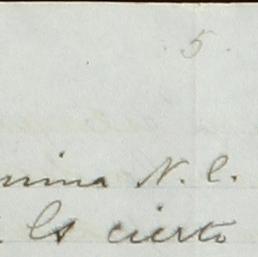 5.
mina N. C.
Es cierto